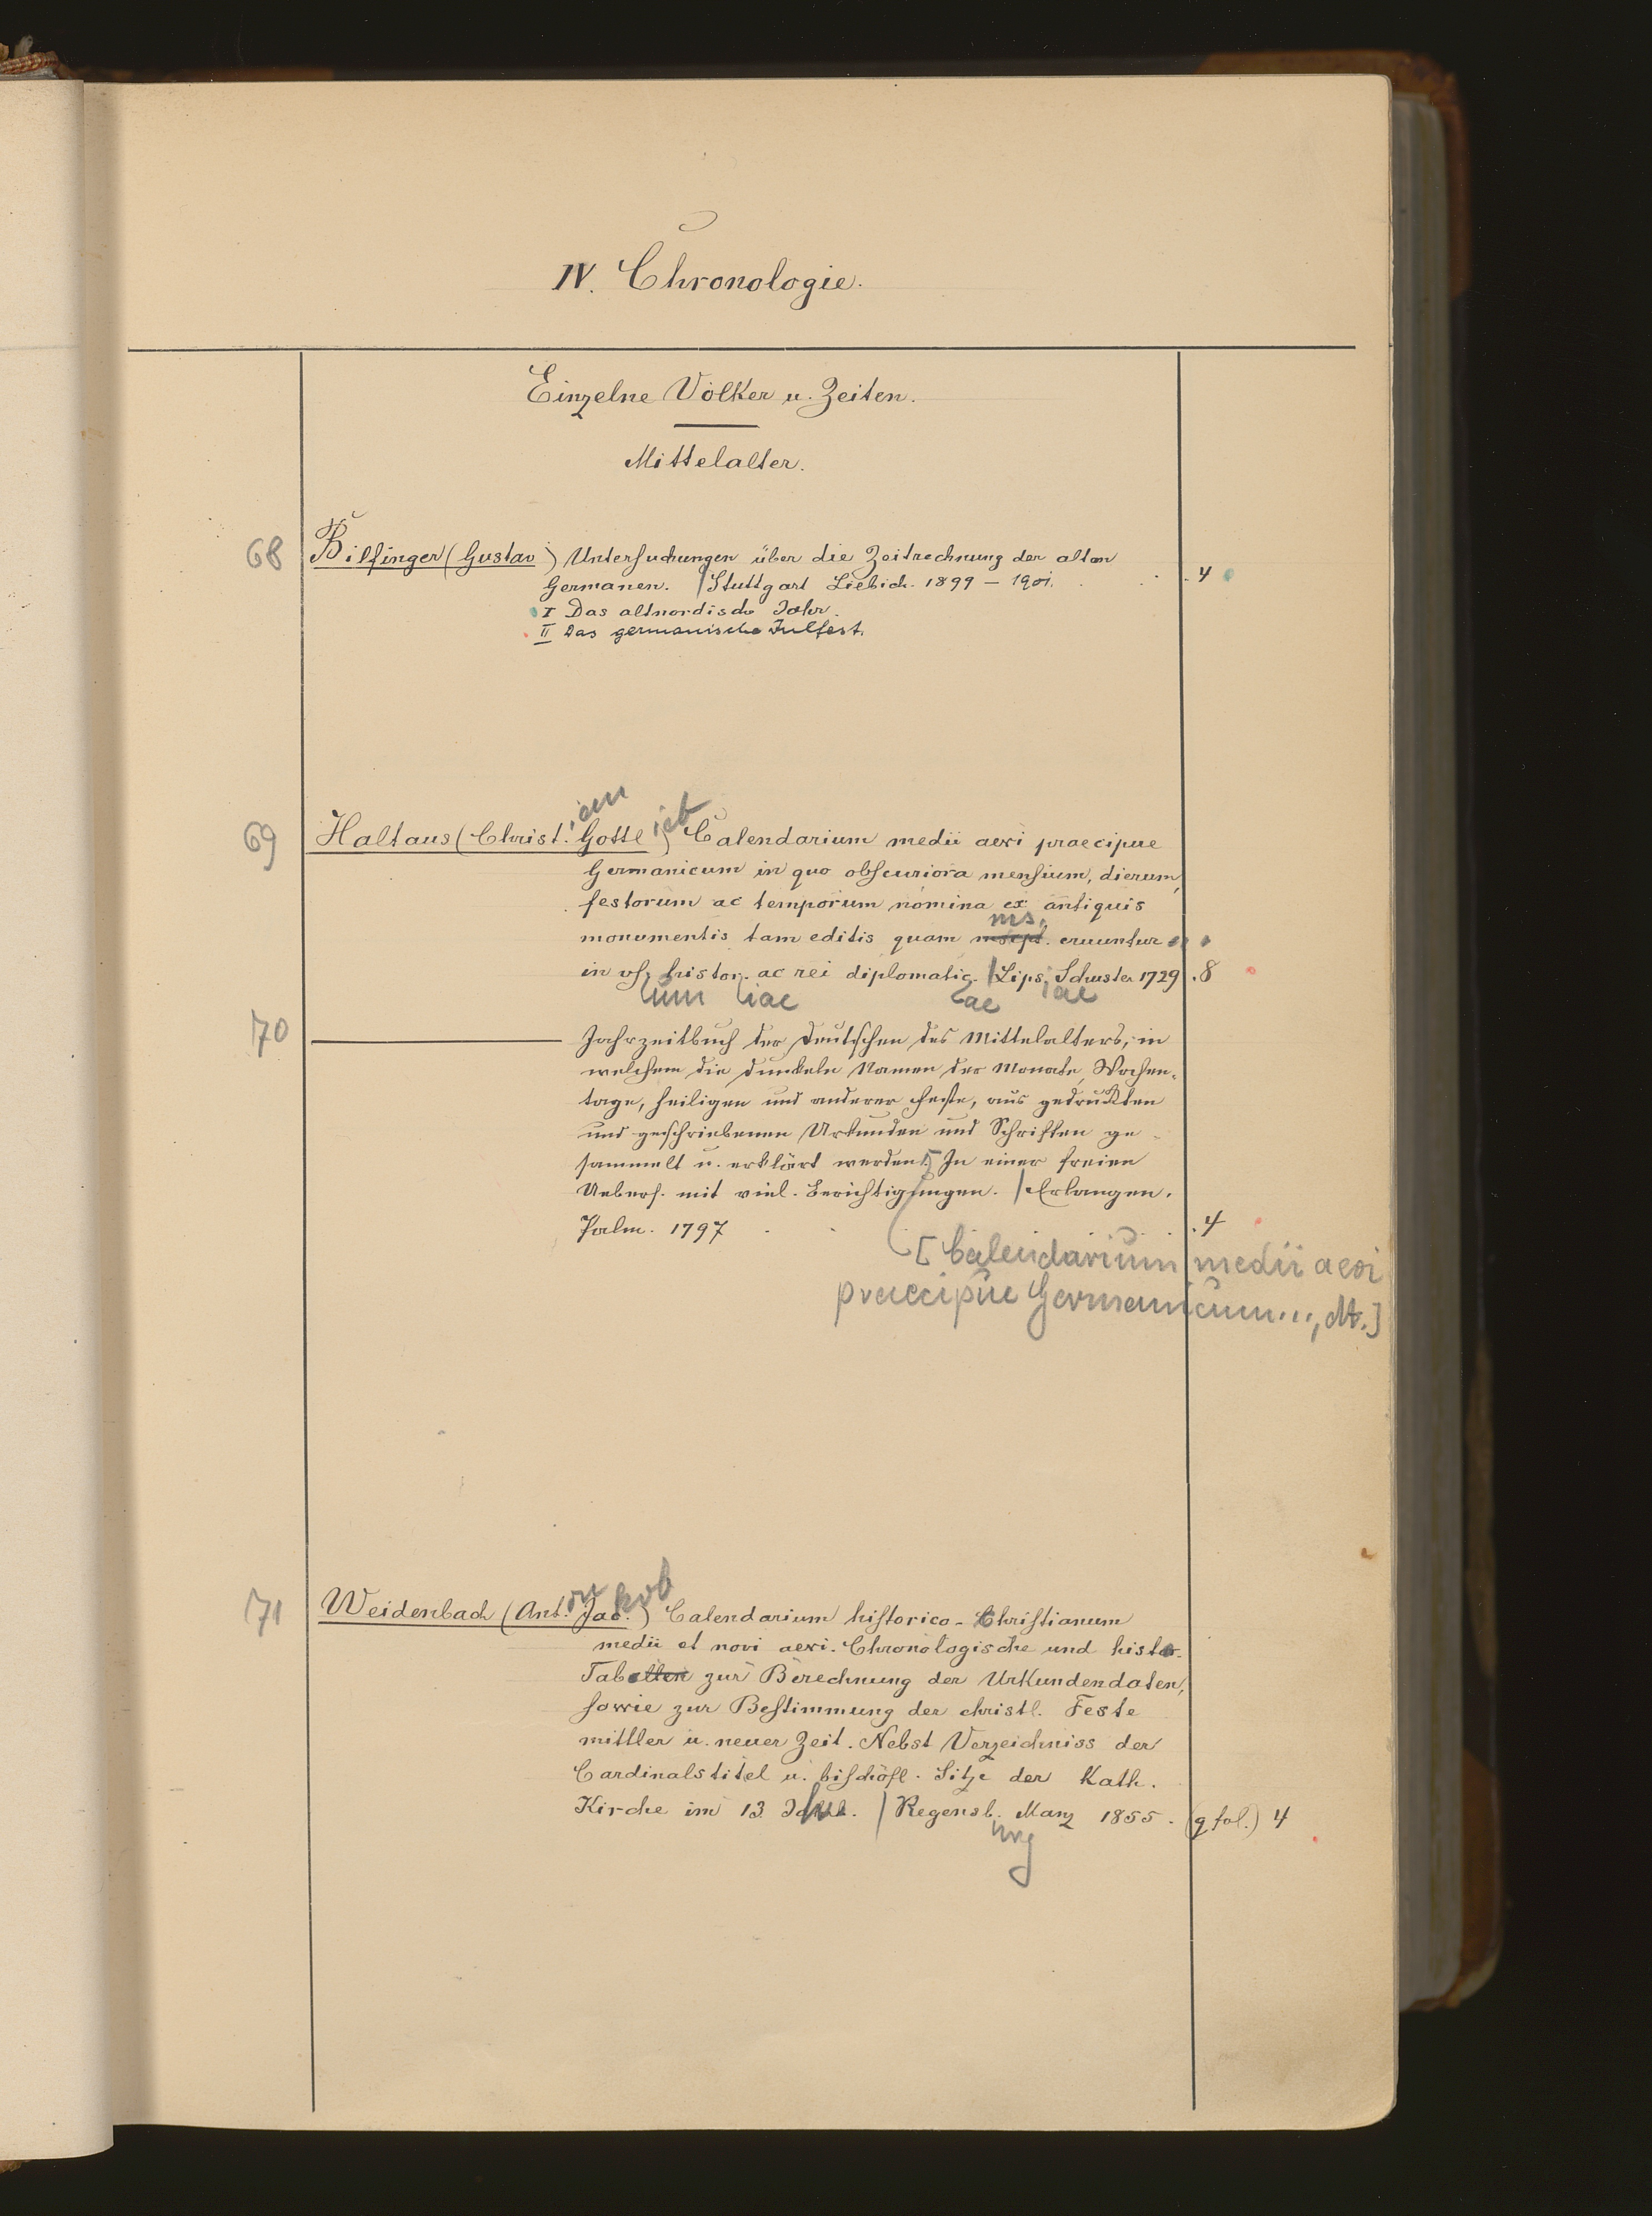 IV. Chronologie.
Einzelne Völker u. Zeiten.
Mittelalter.
68 Bilfinger (Gustav) Untersuchungen über die Zeitrechnung der alten
Germanen. | Stuttgart Liebich. 1899 – 1901. . . 4
I Das altnordische Jahr.
II Das germanische Julfest.
ian ieb
69 Haltaus (Christ. Gottl.) Calendarium medii aevi praecipue
Germanicum in quo obscuriora mensium, dierum,
festorum ac temporum nomina ex antiquis
ms.
monumentis tam editis quam mscpt. eruuntur
in us. histor. ac rei diplomatic. | Lips. Schuster 1729 . 8
um iae ae iae
70 ——— Jahrzeitbuch der Deutschen des Mittelalters, in
welchem die dunkeln Namen der Monate, Wochen-
tage, heiligen und anderer Feste, aus gedruckten
und geschriebenen Urkunden und Schriften ge-
sammelt u. erklärt werden. In einer freien
Uebers. mit viel. Berichtigungen. | Erlangen.
Palm. 1797 . . . 4
[Calendarium medii aevi
praecipue Germanicum..., dt.]
on kob
71 Weidenbach (Ant. Jac.) Calendarium historico-Christianum
medii et novi aevi. Chronologische und histor.
Tabellen zur Berechnung der Urkundendaten,
sowie zur Bestimmung der christl. Feste
mittler u. neuer Zeit. Nebst Verzeichniss der
Cardinalstitel u. bischöfl. Sitze der Kath.
Kirche im 13 Jahrh. | Regensb. Manz 1855. (q fol.) 4
urg